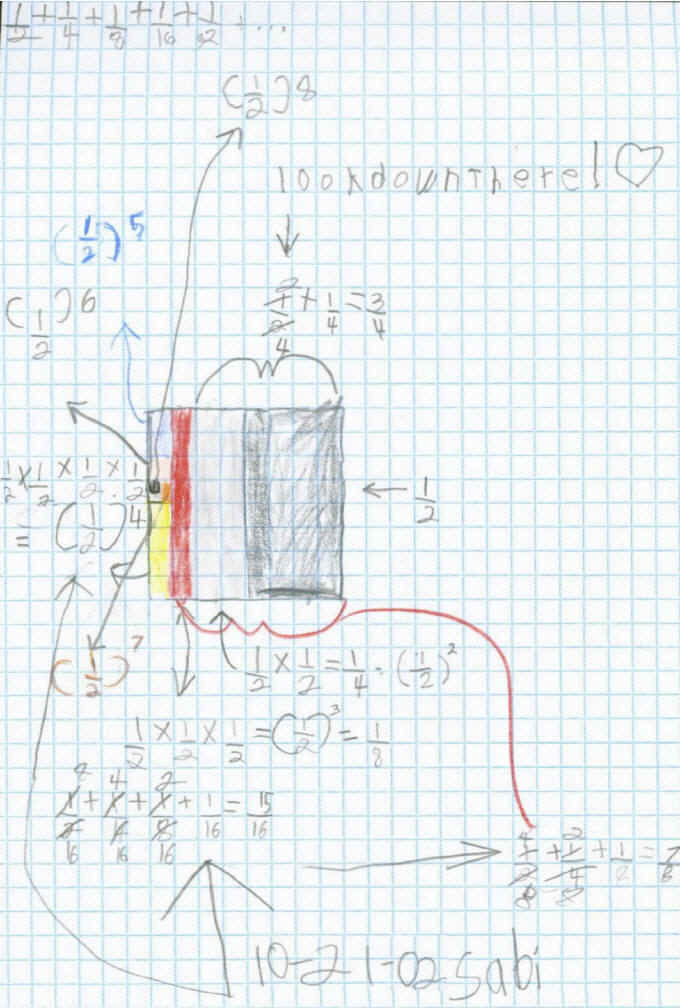 1/2 + 1/4 + 1/8 + 1/16 + 1/32 + ...
(1/2)8
lookdownthere! ♡
(1/2)^5
(1/2)6
2/4 + 1/4 = 3/4
1/2 × 1/2 × 1/2 × 1/2
= (1/2)^4
1/2
(1/2)^7
1/2 × 1/2 = 1/4 = (1/2)^2
1/2 × 1/2 × 1/2 = (1/2)^3 = 1/8
8/16 + 4/16 + 2/16 + 1/16 = 15/16
4/8 + 2/8 + 1/8 = 7/8
10-21-02 Sabi